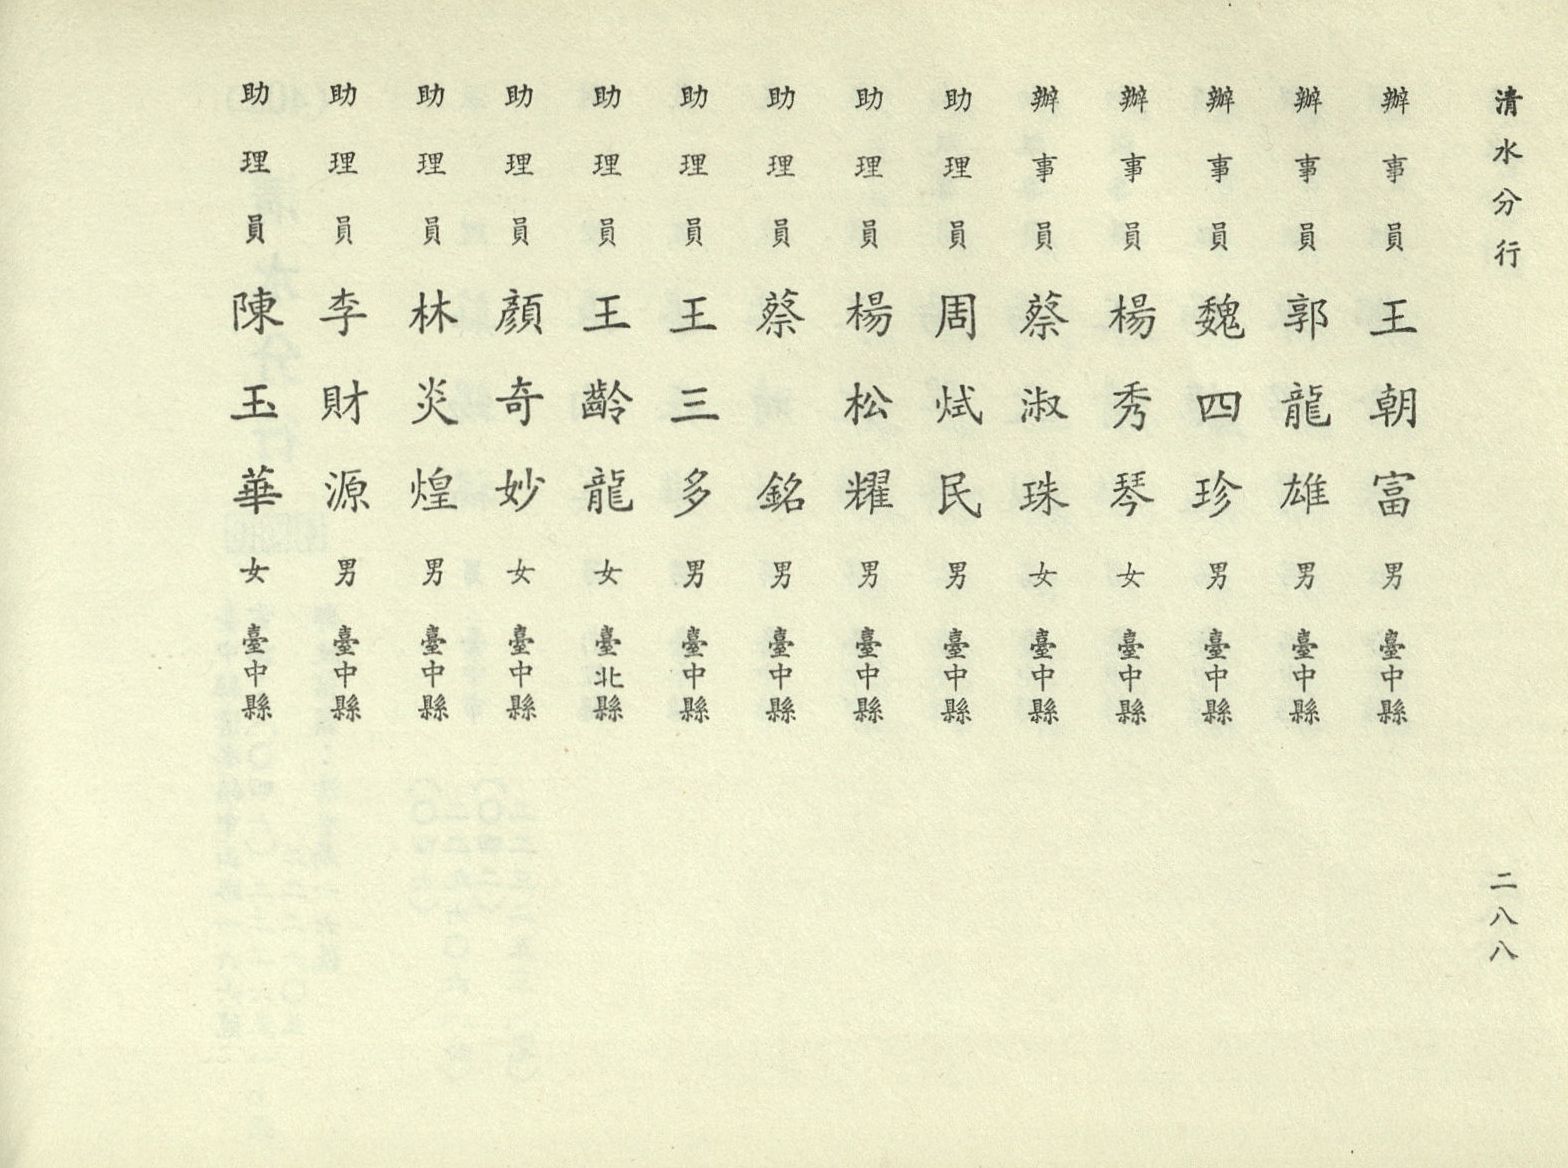 清水分行
二八八
辦事員 王朝富 男 臺中縣
辦事員 郭龍雄 男 臺中縣
辦事員 魏四珍 男 臺中縣
辦事員 楊秀琴 女 臺中縣
辦事員 蔡淑珠 女 臺中縣
助理員 周烒民 男 臺中縣
助理員 楊松耀 男 臺中縣
助理員 蔡銘 男 臺中縣
助理員 王三多 男 臺中縣
助理員 王齡龍 女 臺北縣
助理員 顏奇妙 女 臺中縣
助理員 林炎煌 男 臺中縣
助理員 李財源 男 臺中縣
助理員 陳玉華 女 臺中縣